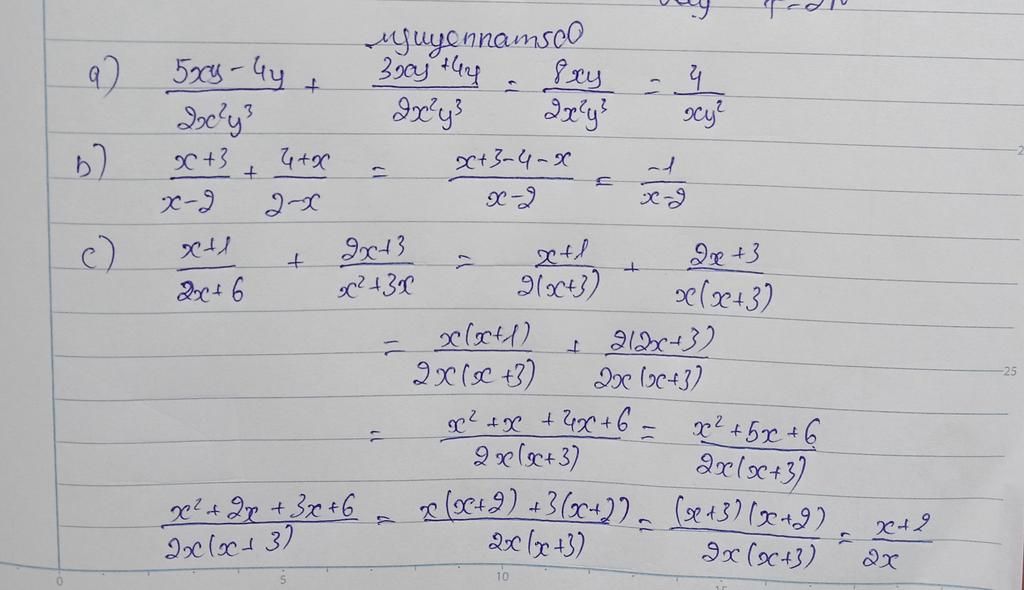 nguyennam500
a) (5xy - 4y)/(2x²y³) + (3xy + 4y)/(2x²y³) = 8xy/(2x²y³) = 4/(xy²)
b) (x+3)/(x-2) + (4+x)/(2-x) = (x+3-4-x)/(x-2) = -1/(x-2)
c) (x+1)/(2x+6) + (2x+3)/(x²+3x) = (x+1)/(2(x+3)) + (2x+3)/(x(x+3))
= x(x+1)/(2x(x+3)) + 2(2x+3)/(2x(x+3))
= (x²+x+4x+6)/(2x(x+3)) = (x²+5x+6)/(2x(x+3))
25
(x²+2x+3x+6)/(2x(x+3)) = (x(x+2)+3(x+2))/(2x(x+3)) = (x+3)(x+2)/(2x(x+3)) = (x+2)/(2x)
0 5 10